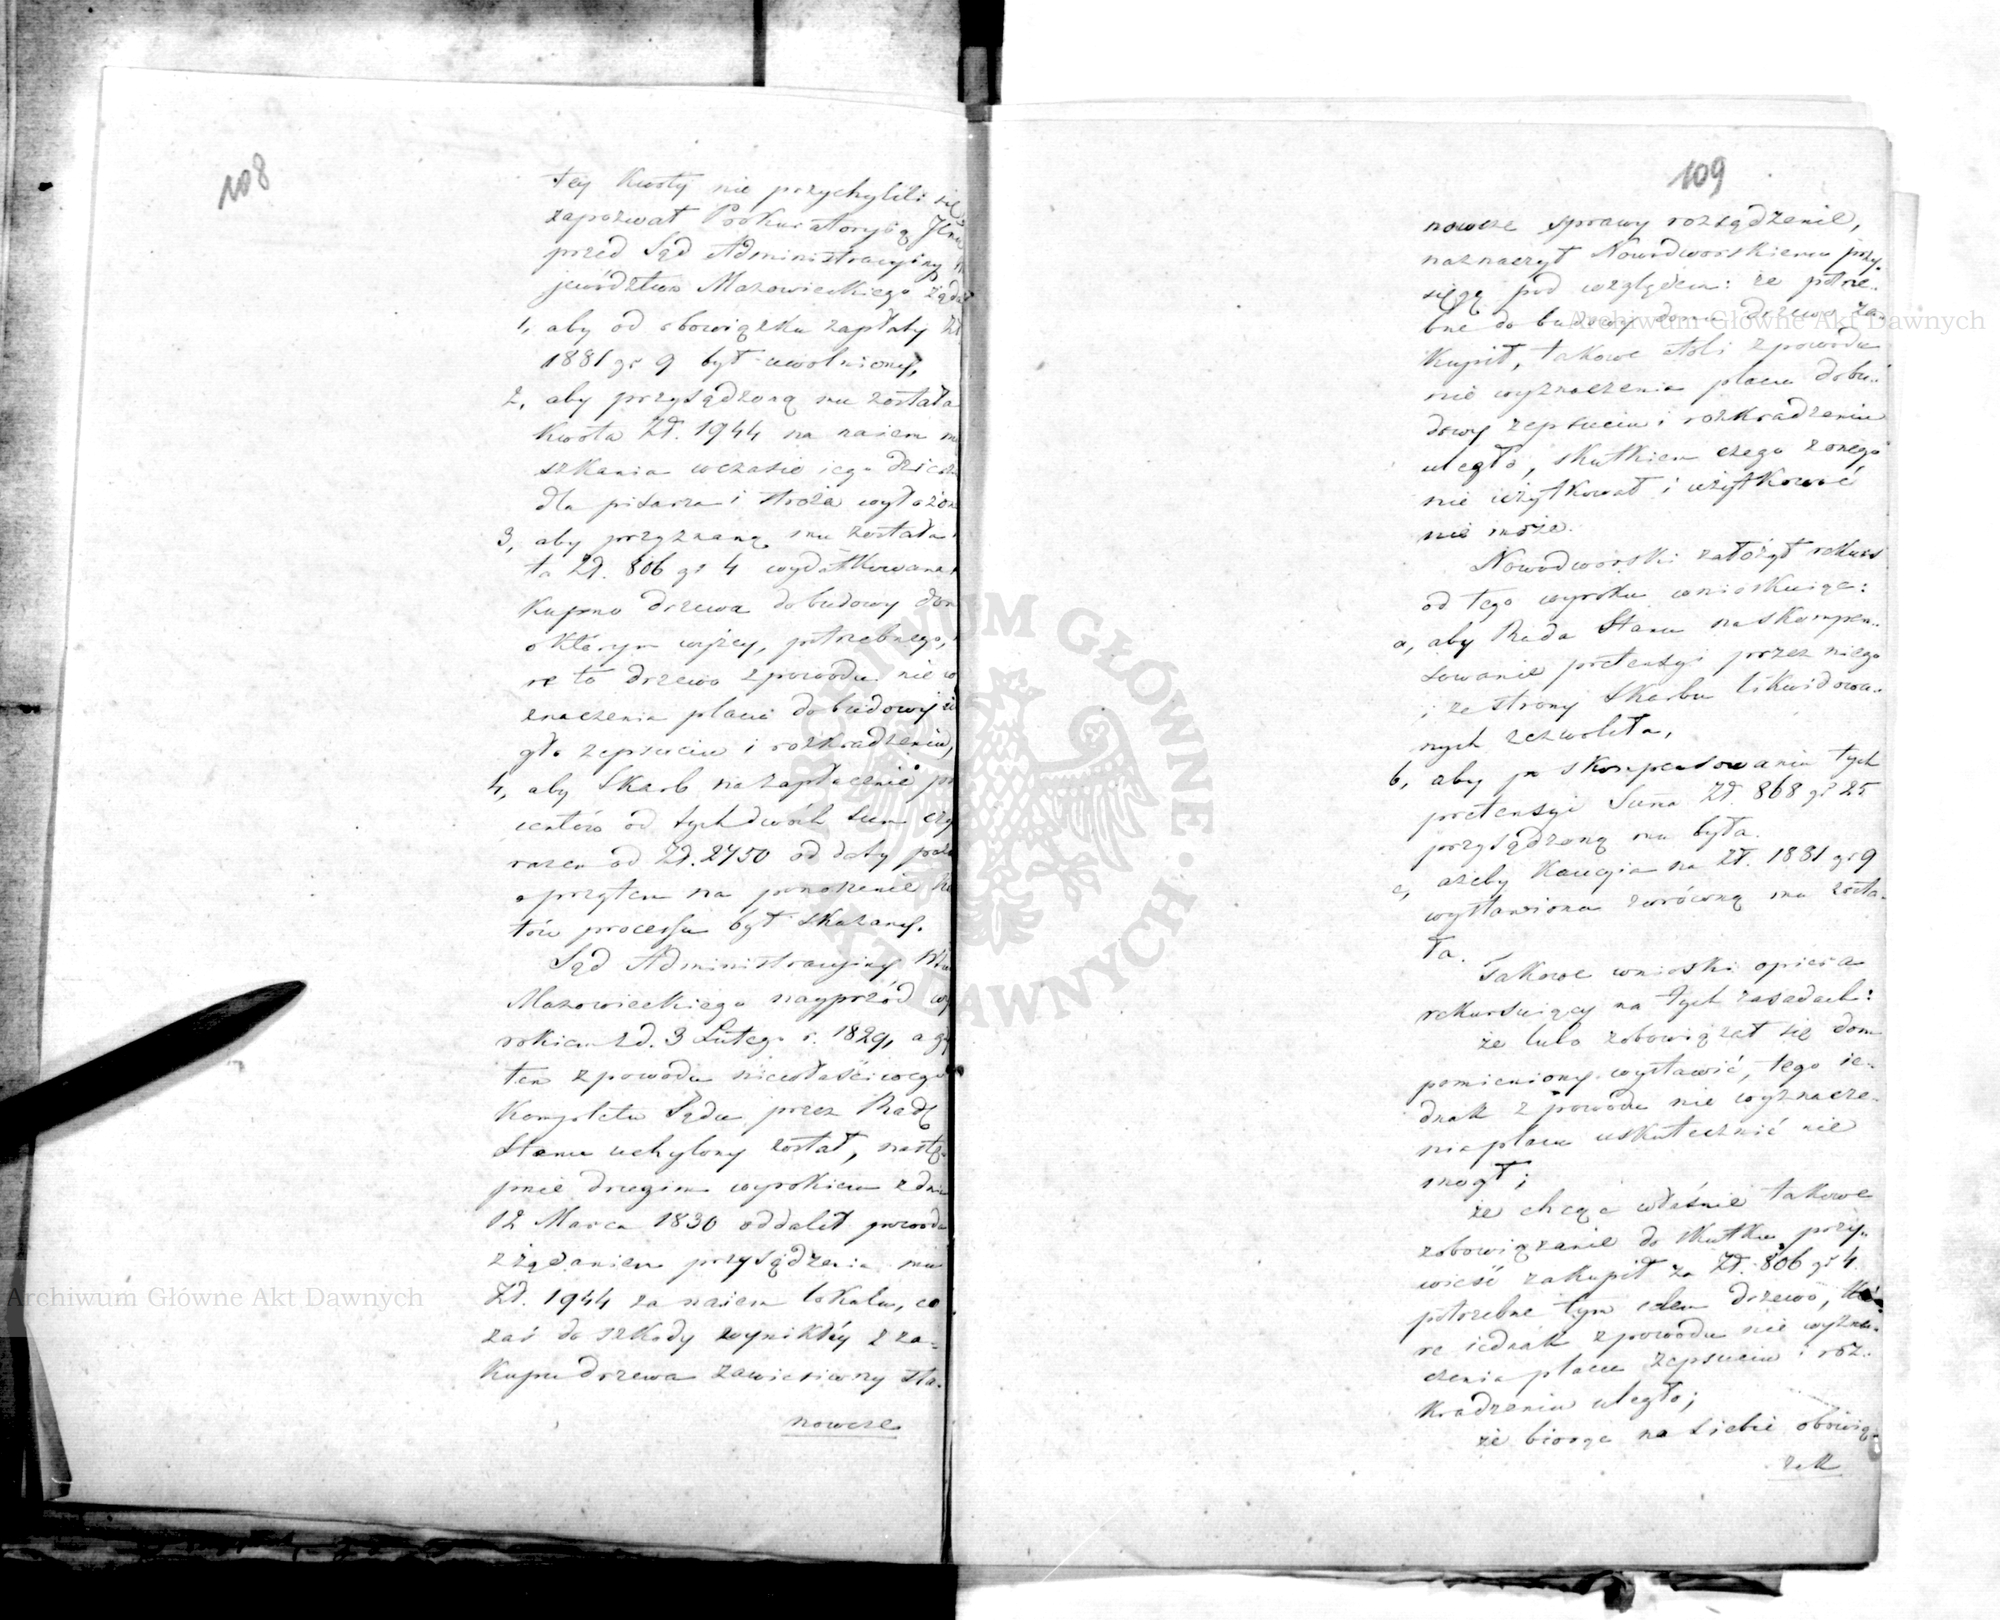 108
tey kwoty nie przychylili się
zapozwał Prokuratoryią Jene
przed Sąd Administracyiny
jewództwa Mazowieckiego żąda
1, aby od obowiązku zapłaty Zł
1881 gr 9 był uwolniony,
2, aby przysądzoną mu została
kwota Zł. 1944 na naiem
szkania wczasie iego dzier
dla pisarza i stróża wyłożon
3, aby przyznaną mu została
ta Zł. 806 gr 4 wydatkowana
kupno drzewa dobudowy dom
o którym wyżey, potrzebnego,
re to drzewo zpowodu nie
znaczenia placu dobudowy
gło zepsuciu i rozkradzeniu,
4, aby Skarb na zapłacenie pr
centów od tych dwóch sum czy
razem od Zł. 2750 od daty
a przytem na ponoszenie
tów processu był skazany.
Sąd Administracyiny
Mazowieckiego nayprzód wy
rokiem zd. 3 Lutego r. 1829, a gdy
ten zpowodu niewłaściwego
kompletu Sądu przez Radę
Stanu uchylony został, nastę-
pnie drugim wyrokiem zdnia
12 Marca 1830 oddalił powoda
zżądaniem przysądzenia mu
Zł. 1944 za naiem lokalu, co
zaś do szkody wynikłéy z za-
kupu drzewa zawiesiwszy sta-
nowcze
109
nowcze sprawy rozsądzenie,
naznaczył Nowodworskiemu przy-
sięgę pod względem: że potrze-
bne do budowy domu drzewo za-
kupił, takowe atoli zpowodu
nie wyznaczenia placu dobu-
dowy zepsuciu i rozkradzeniu
uległo, skutkiem czego zonego
nie użytkował i użytkować
nie może.
Nowodworski założył rekurs
od tego wyroku wnioskuiąc:
a, aby Rada Stanu na skompen-
sowanie pretensyi przez niego
i ze strony Skarbu likwidowa-
nych zezwoliła,
b, aby po skompensowaniu tych
pretensyi Suma Zł. 868 gr 25
przysądzoną mu była.
c, ażeby kaucyia na Zł. 1881 gr 9
wystawiona zwróconą mu zosta-
ła.
Takowe wnioski opiera
rekursuiący na tych zasadach:
że lubo zobowiązał się dom
pomieniony wystawić, tego ie-
dnak z powodu nie wyznacze-
nia placu uskutecznić nie
mógł;
że chcąc właśnie takowe
zobowiązanie do skutku przy-
wieść zakupił za Zł. 806 gr 4
potrzebne tym celem drzewo, któ-
re iednak zpowodu nie wyzna-
czenia placu zepsuciu i roz-
kradzeniu uległo;
że biorąc na siebie obowią-
zek
Archiwum Główne Akt Dawnych
Archiwum Główne Akt Dawnych
ARCHIWUM GŁÓWNE AKT DAWNYCH